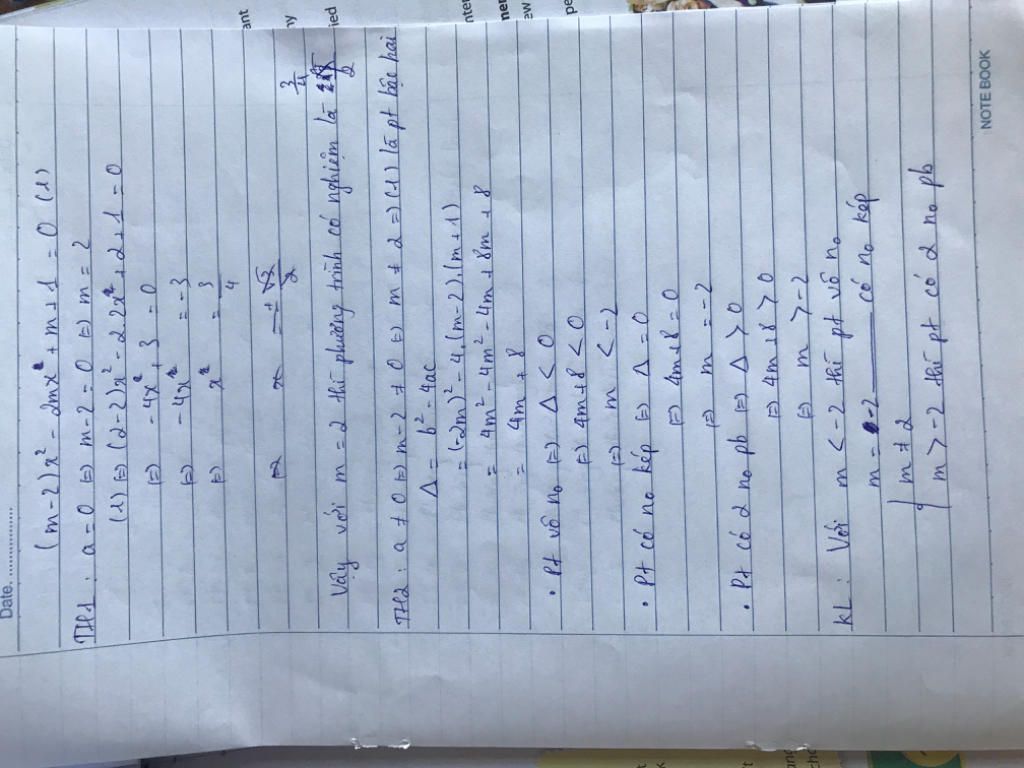 Date. ..................
(m-2)x² - 2mx² + m + 1 = 0 (1)
TH1 : a = 0 (=) m - 2 = 0 (=) m = 2
(1) (=) (2-2)x² - 2.2x² + 2 + 1 = 0
(=) - 4x² + 3 = 0
(=) - 4x² = - 3
(=) x² = 3/4
(=) x = ± √2/2
Vậy với m = 2 thì phương trình có nghiệm là 3/4
TH2 : a ≠ 0 (=) m - 2 ≠ 0 (=) m ≠ 2 =) (1) là pt bậc hai
Δ = b² - 4ac
= (-2m)² - 4.(m-2).(m+1)
= 4m² - 4m² - 4m + 8m + 8
= 4m + 8
• Pt vô n₀ (=) Δ < 0
(=) 4m + 8 < 0
(=) m < - 2
• Pt có n₀ kép (=) Δ = 0
(=) 4m + 8 = 0
(=) m = - 2
• Pt có 2 n₀ pb (=) Δ > 0
(=) 4m + 8 > 0
(=) m > - 2
KL : Với m < - 2 thì pt vô n₀
m = - 2 ——— có n₀ kép
{ m ≠ 2
m > - 2 thì pt có 2 n₀ pb
NOTE BOOK
ant
ny
ied